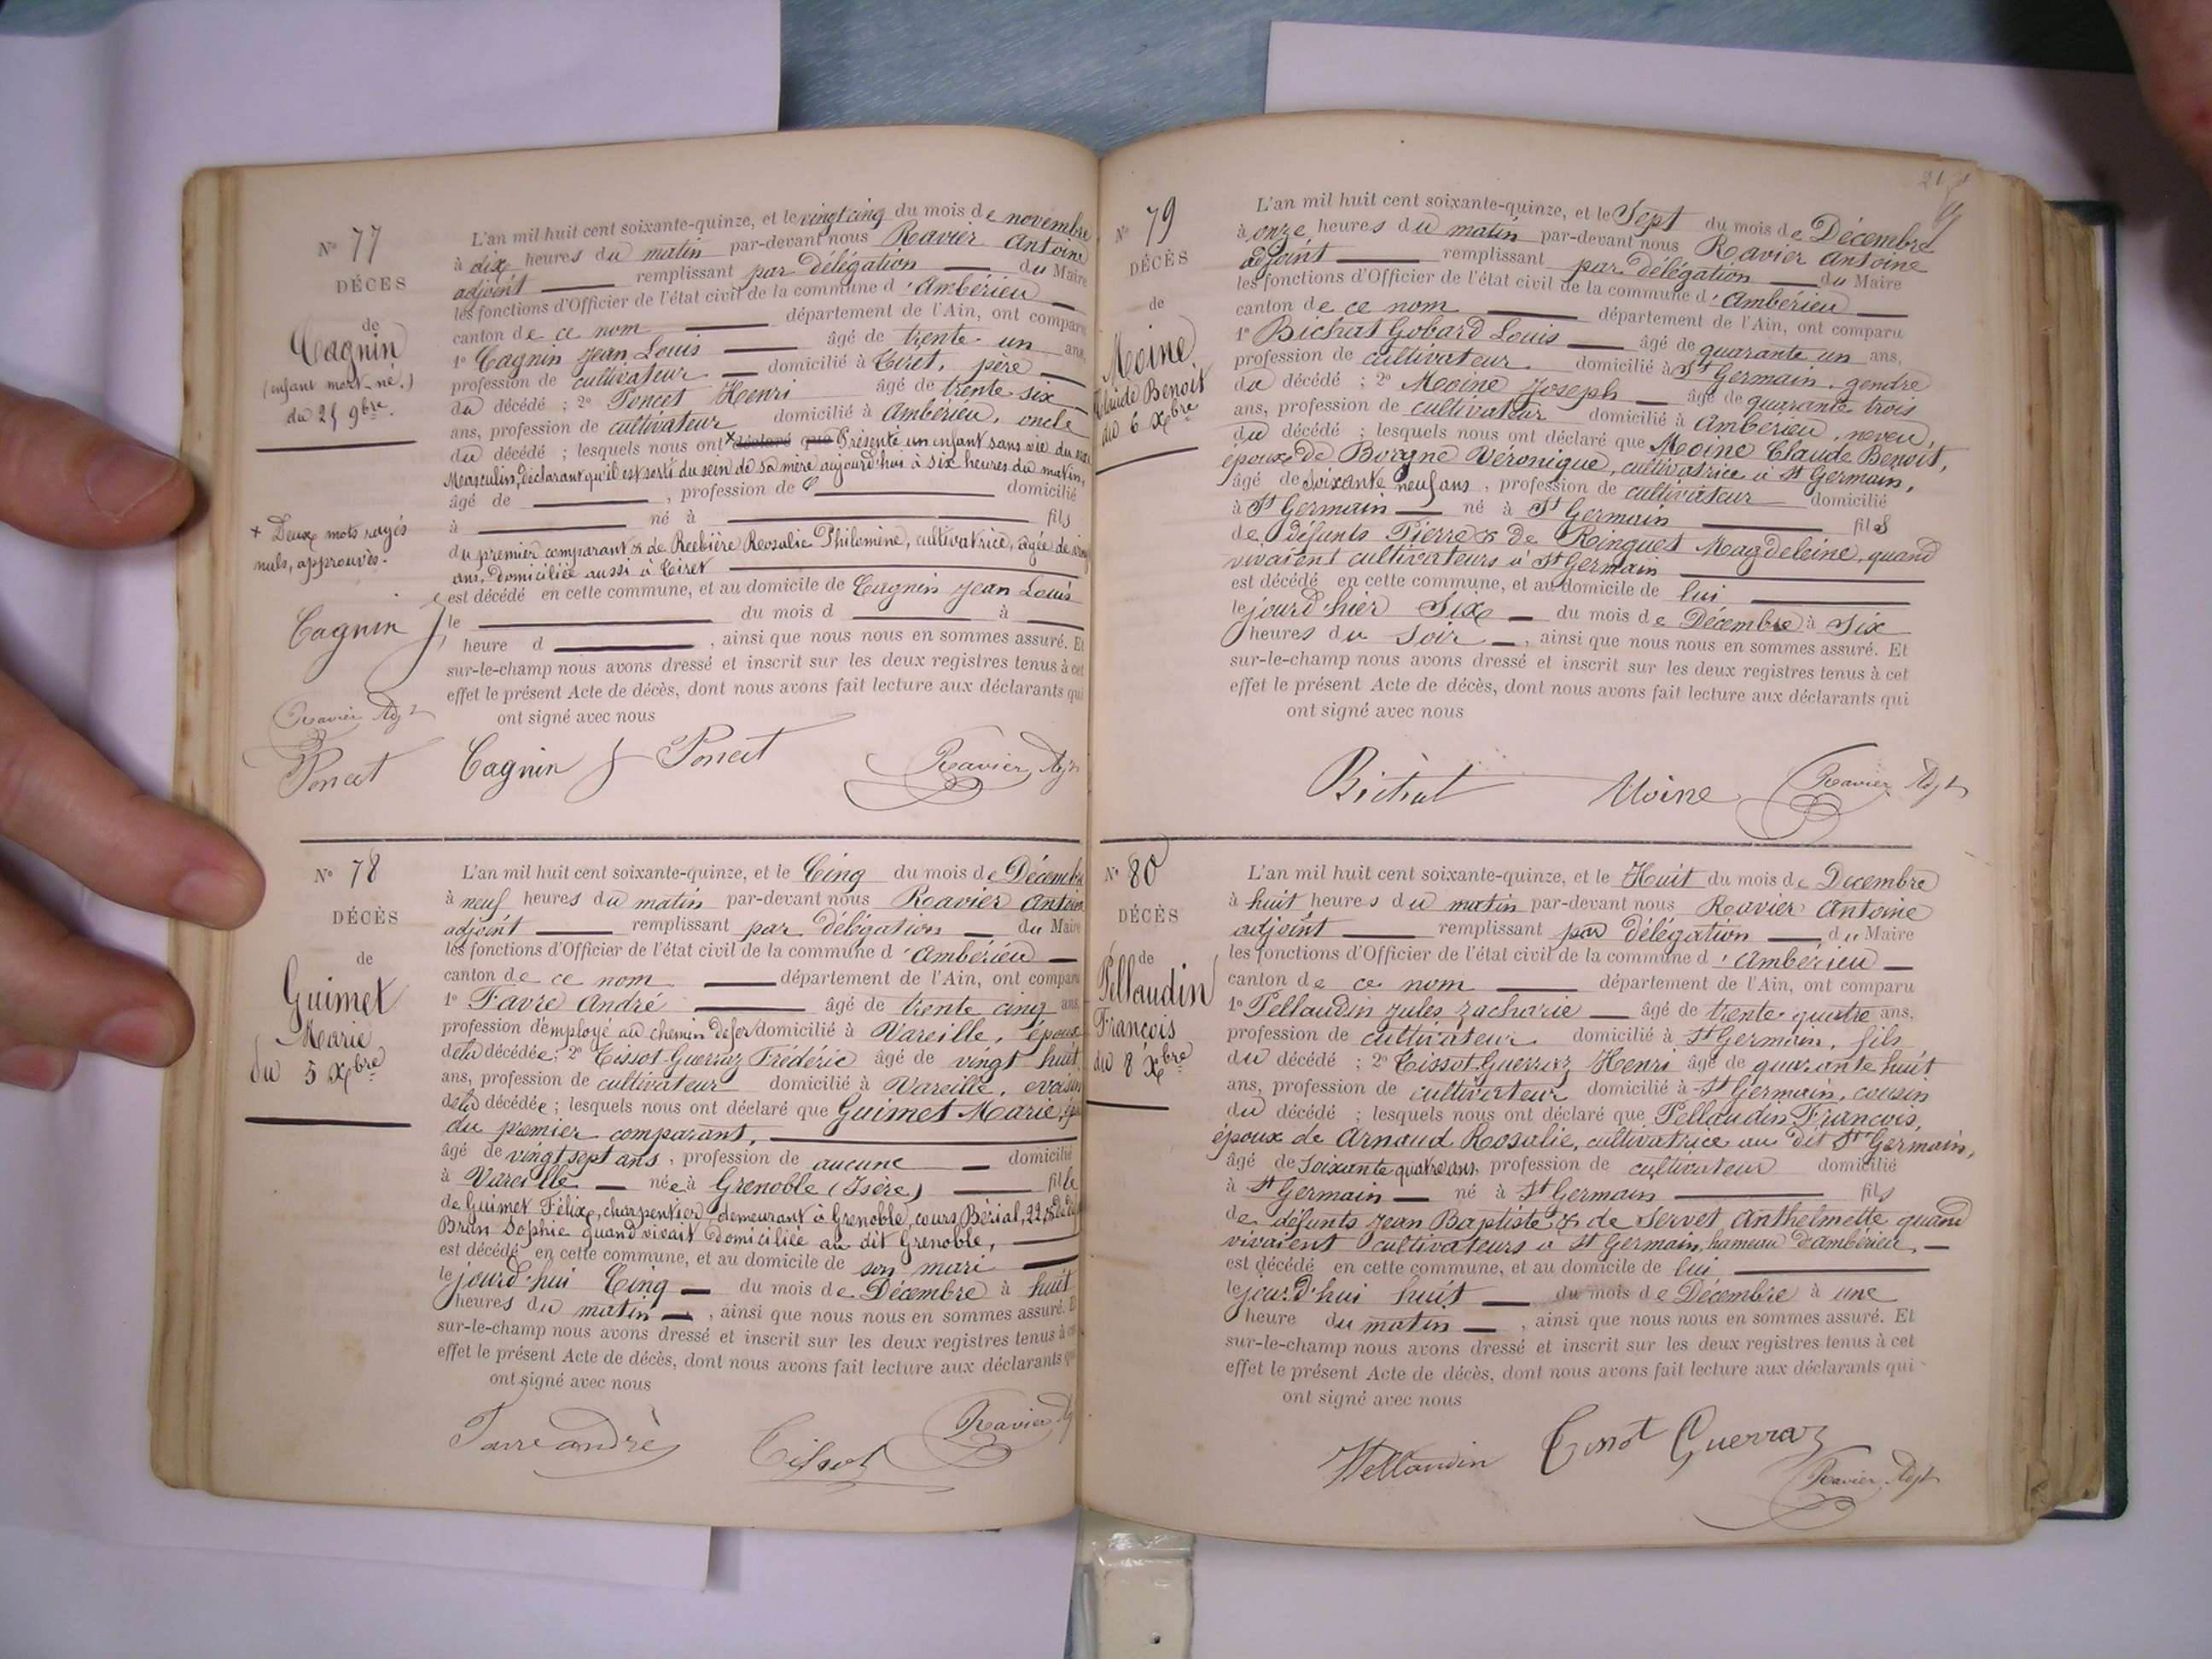 N° 77
DÉCÈS
de
Cagnin
(enfant mort-né.)
du 25 9bre
+ Deux mots rayés
nuls, approuvés.
Cagnin
Ravier Adjt
Poncet
L'an mil huit cent soixante-quinze, et le vingt cinq du mois de novembre
à dix heures du matin par-devant nous Ravier Antoine
adjoint remplissant par délégation du Maire
les fonctions d'Officier de l'état civil de la commune d'Ambérieu
canton de ce nom département de l'Ain, ont comparu
1° Cagnin Jean Louis âgé de trente-un ans,
profession de cultivateur domicilié à Tiret, père
du décédé ; 2° Poncet Henri âgé de trente six
ans, profession de cultivateur domicilié à Ambérieu, oncle
du décédé ; lesquels nous ont + déclaré que Présenté un enfant sans vie du sexe
Masculin, déclarant qu'il est sorti du sein de sa mère aujourd'hui à six heures du matin,
âgé de , profession de domicilié
à né à fils
du premier comparant & de Rosalie Philomène, cultivatrice, âgée de
ans, domiciliée aussi à Tiret
est décédé en cette commune, et au domicile de Cagnin Jean Louis
le du mois d à
heure d , ainsi que nous nous en sommes assuré. Et
sur-le-champ nous avons dressé et inscrit sur les deux registres tenus à cet
effet le présent Acte de décès, dont nous avons fait lecture aux déclarants qui
ont signé avec nous
Cagnin Poncet Ravier Adjt
N° 78
DÉCÈS
de
Guimet
Marie
du 5 Xbre
L'an mil huit cent soixante-quinze, et le Cinq du mois de Décembre
à neuf heures du matin par-devant nous Ravier Antoine
adjoint remplissant par délégation du Maire
les fonctions d'Officier de l'état civil de la commune d'Ambérieu
canton de ce nom département de l'Ain, ont comparu
1° Favre André âgé de trente cinq ans,
profession d'employé au chemin de fer domicilié à Vareille, époux
de la décédée ; 2° Tissot-Guerraz Frédéric âgé de vingt huit
ans, profession de cultivateur domicilié à Vareille, voisin
de la décédée ; lesquels nous ont déclaré que Guimet Marie,
du premier comparant,
âgé de vingt sept ans, profession de aucune domicilié
à Vareille née à Grenoble (Isère) fille
de Guimet Félix, charpentier demeurant à Grenoble, cours Bérial, 22, & de
Brun Sophie quand vivait domiciliée au dit Grenoble,
est décédé en cette commune, et au domicile de son mari
le jourd'hui Cinq du mois de Décembre à huit
heures du matin , ainsi que nous nous en sommes assuré. Et
sur-le-champ nous avons dressé et inscrit sur les deux registres tenus à cet
effet le présent Acte de décès, dont nous avons fait lecture aux déclarants qui
ont signé avec nous
Favre andrè Tissot Ravier
21
N° 79
DÉCÈS
de
Moine
Claude Benoit
du 6 Xbre
L'an mil huit cent soixante-quinze, et le Sept du mois de Décembre
à onze heures du matin par-devant nous Ravier Antoine
adjoint remplissant par délégation du Maire
les fonctions d'Officier de l'état civil de la commune d'Ambérieu
canton de ce nom département de l'Ain, ont comparu
1° Bichat Gobard Louis âgé de quarante un ans,
profession de cultivateur domicilié à St Germain, gendre
du décédé ; 2° Moine Joseph âgé de quarante trois
ans, profession de cultivateur domicilié à Ambérieu, neveu,
du décédé ; lesquels nous ont déclaré que Moine Claude Benoit,
époux de Borgne Véronique, cultivatrice à St Germain,
âgé de soixante neuf ans, profession de cultivateur domicilié
à St Germain né à St Germain fils
de, défunts Pierre & de Ringuet Magdeleine, quand
vivaient cultivateurs à St Germain
est décédé en cette commune, et au domicile de lui
le jourd'hier Six du mois de Décembre à Six
heures du Soir , ainsi que nous nous en sommes assuré. Et
sur-le-champ nous avons dressé et inscrit sur les deux registres tenus à cet
effet le présent Acte de décès, dont nous avons fait lecture aux déclarants qui
ont signé avec nous
Bichat Moine Ravier Adjt
N° 80
DÉCÈS
de
Pellaudin
François
du 8 Xbre
L'an mil huit cent soixante-quinze, et le Huit du mois de Decembre
à huit heures du matin par-devant nous Ravier Antoine
adjoint remplissant par délégation du Maire
les fonctions d'Officier de l'état civil de la commune d'Ambérieu
canton de ce nom département de l'Ain, ont comparu
1° Pellaudin Jules Zacharie âgé de trente-quatre ans,
profession de cultivateur domicilié à St Germain, fils
du décédé ; 2° Tissot-Guerraz Henri âgé de quarante huit
ans, profession de cultivateur domicilié à St Germain, cousin
du décédé ; lesquels nous ont déclaré que Pellaudin François,
époux de Arnaud Rosalie, cultivatrice au dit St Germain,
âgé de soixante quatre ans, profession de cultivateur domicilié
à St Germain né à St Germain fils
de défunts Jean Baptiste & de Servet Anthelmette quand
vivaient cultivateurs à St Germain, hameau d'Ambérieu,
est décédé en cette commune, et au domicile de lui
le jourd'hui huit du mois de Décembre à une
heure du matin , ainsi que nous nous en sommes assuré. Et
sur-le-champ nous avons dressé et inscrit sur les deux registres tenus à cet
effet le présent Acte de décès, dont nous avons fait lecture aux déclarants qui
ont signé avec nous
Pellaudin Tissot Guerraz
Ravier Adjt